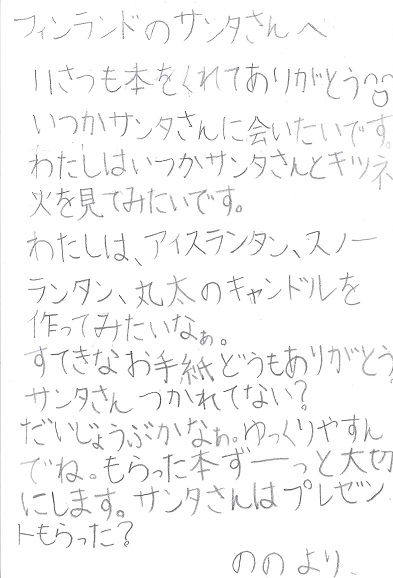 フィンランドのサンタさんへ
11さつも本をくれてありがとう
いつかサンタさんに会いたいです。
わたしはいつかサンタさんとキツネ
火を見てみたいです。
わたしは、アイスランタン、スノー
ランタン、丸太のキャンドルを
作ってみたいなぁ。
すてきなお手紙どうもありがとう
サンタさんつかれてない?
だいじょうぶかなぁ。ゆっくりやすん
でね。もらった本ずーっと大切
にします。サンタさんはプレゼン
トもらった?
ののより、